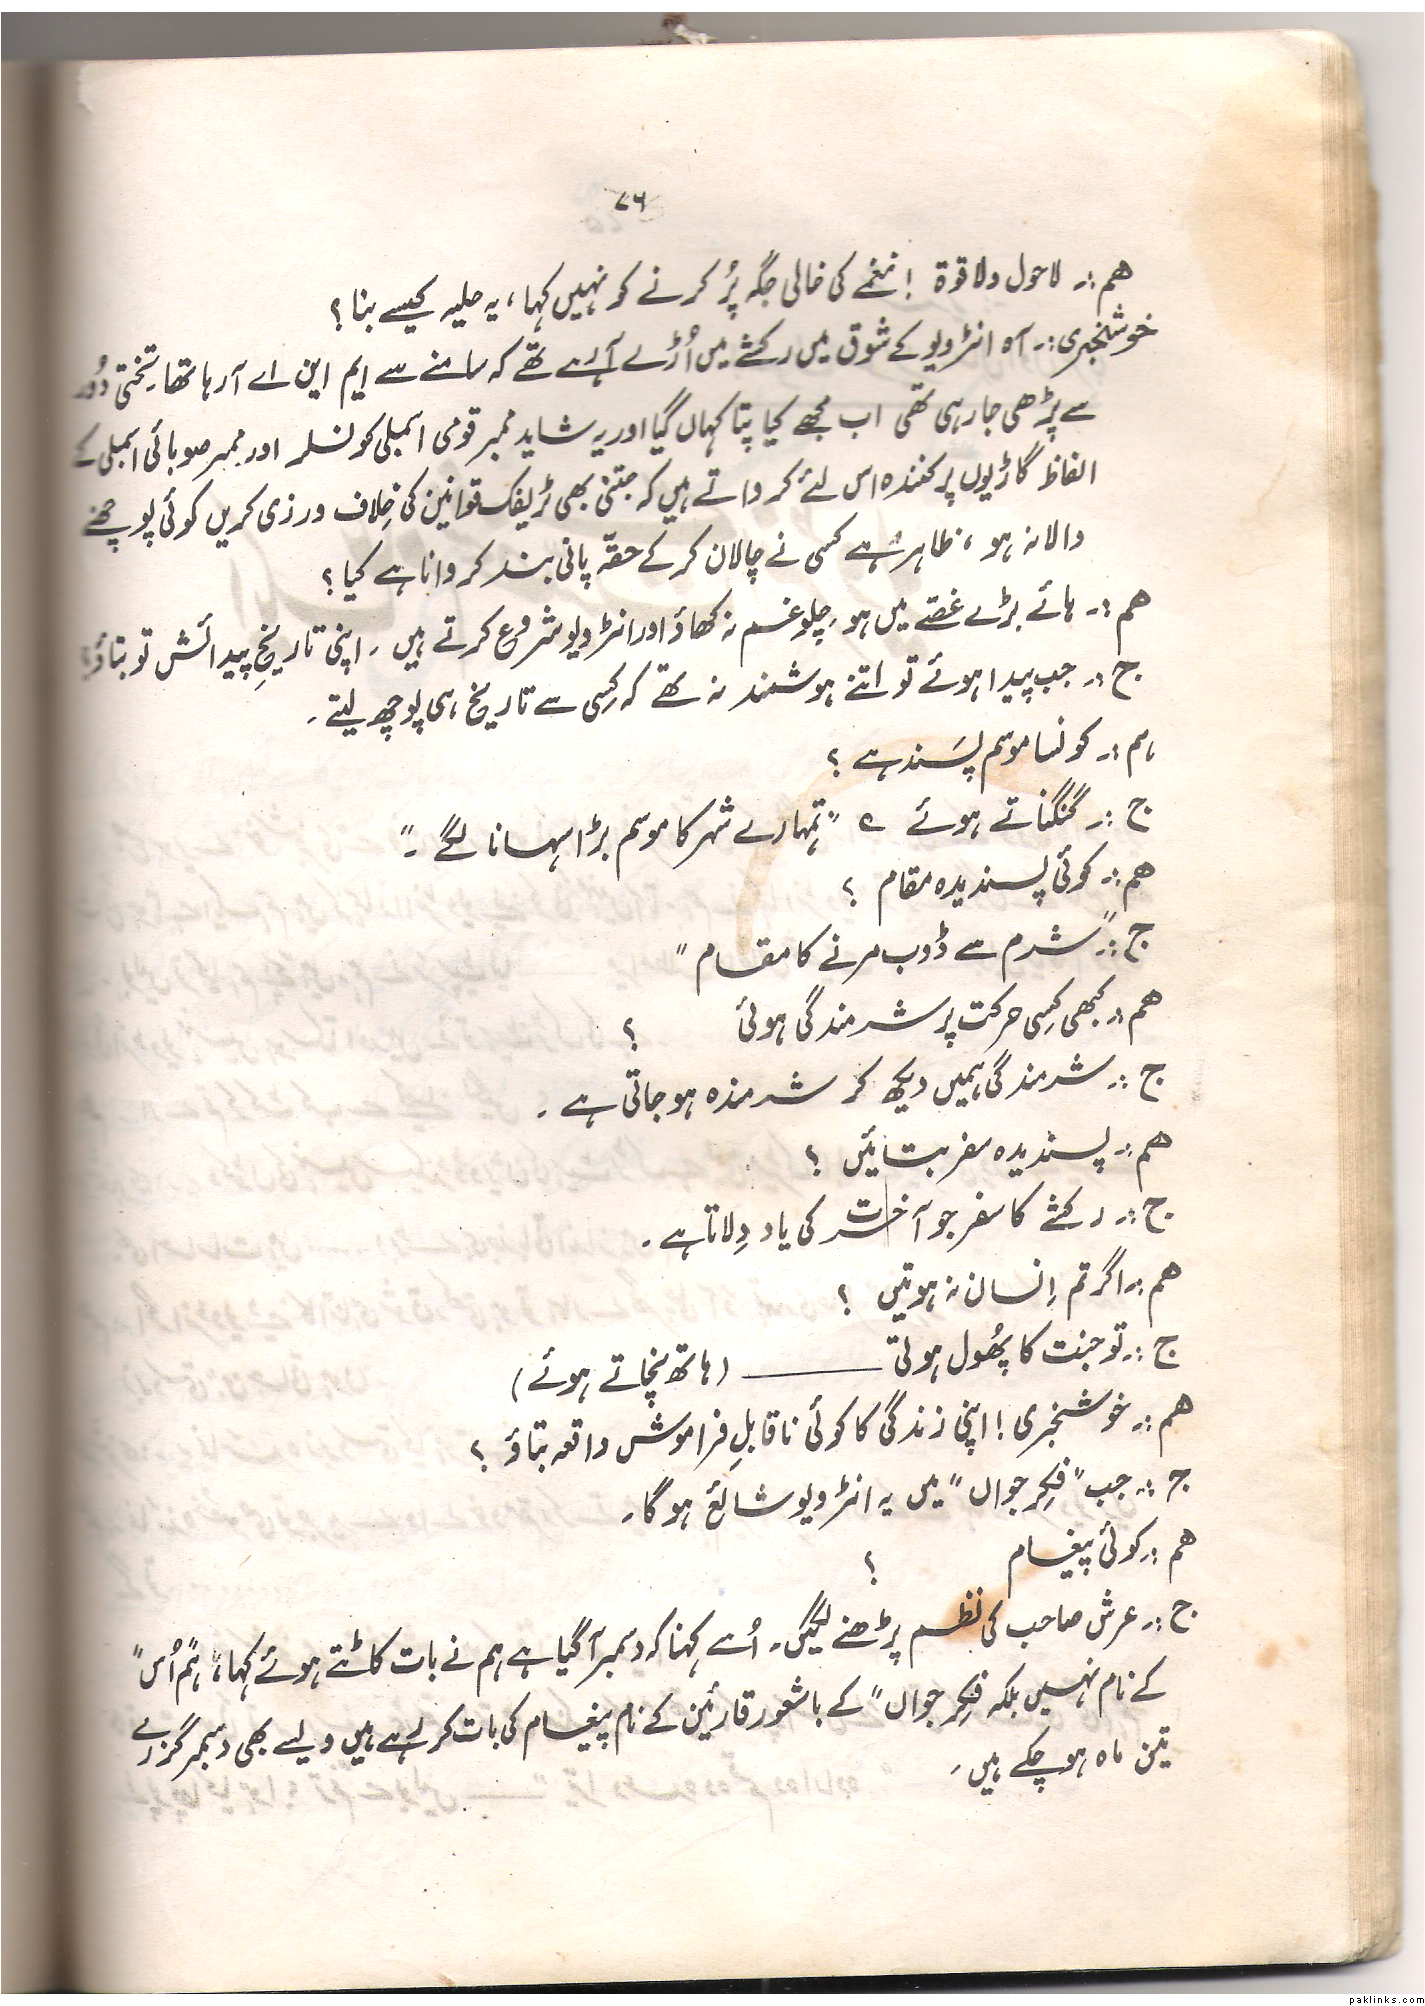 ۷۶
ھم:۔ لاحول ولا قوۃ ! نغمے کی خالی جگہ پُر کرنے کو نہیں کہا، یہ حلیہ کیسے بنا؟
خوشخبری:۔ آہ انٹرویو کے شوق میں رکشے میں اُڑے آرہے تھے کہ سامنے سے ایم این اے آ رہا تھا۔ تختی دُور
سے پڑھی جا رہی تھی اب مجھے کیا پتا کہاں گیا اور یہ شاید ممبر قومی اسمبلی کونسلر اور ممبر صوبائی اسمبلی کے
الفاظ گاڑیوں پر کنندہ اس لئے کرواتے ہیں کہ جتنی بھی ٹریفک قوانین کی خِلاف ورزی کریں کوئی پوچھنے
والا نہ ہو، ظاہر ہے کسی نے چالان کر کے حقّہ پانی بند کروانا ہے کیا؟
ھم:۔ ہائے بڑے غصّے میں ہو۔ چلو غم نہ کھاؤ اور انٹرویو شروع کرتے ہیں۔ اپنی تاریخِ پیدائش تو بتاؤ؟
ج:۔ جب پیدا ہوئے تو اتنے ہوشمند نہ تھے کہ کِسی سے تاریخ ہی پوچھ لیتے۔
ہم:۔ کونسا موسم پسَند ہے؟
ج:۔ گنگناتے ہوئے ؎ "تمہارے شہر کا موسم بڑا سہانا لگے۔"
ھم:۔ کوئی پسندیدہ مقام ؟
ج:۔ "شرم سے ڈوب مرنے کا مقام"
ھم:۔ کبھی کِسی حرکت پر شرمندگی ہوئی ؟
ج:۔ شرمندگی ہمیں دیکھ کر شرمندہ ہو جاتی ہے۔
ھم:۔ پسندیدہ سفر بتائیں ؟
ج:۔ رکشے کا سفر جو آخرت کی یاد دِلاتا ہے۔
ھم:۔ اگر تم اِنسان نہ ہوتیں ؟
ج:۔ تو جنت کا پھُول ہوتی ــــــــ (ہاتھ نچاتے ہوئے)
ھم:۔ خوشخبری! اپنی زندگی کا کوئی ناقابلِ فراموش واقعہ بتاؤ ؟
ج:۔ جب "فِکرِ جواں" میں یہ انٹرویو شائع ہو گا۔
ھم:۔ کوئی پیغام ؟
ج:۔ عرش صاحب کی نظم پڑھنے لگیں۔ اُسے کہنا کہ دسمبر آگیا ہے ہم نے بات کاٹتے ہوئے کہا، "ہم اُس"
کے نام نہیں بلکہ "فِکرِ جواں" کے باشعور قارئین کے نام پیغام کی بات کر رہے ہیں ویسے بھی دسمبر گزرے
تین ماہ ہو چکے ہیں۔
paklinks.com